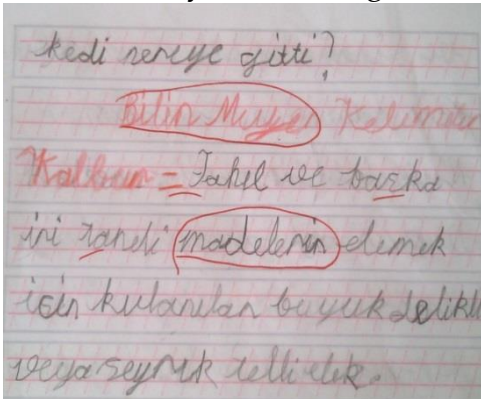 kedi nereye gitti?
Bilin Muyen Kelimeler
Kalbur = Tahıl ve başka
iri taneli madelerin elemek
için kulanılan buyuk delikli
veya seyrek telli elek.